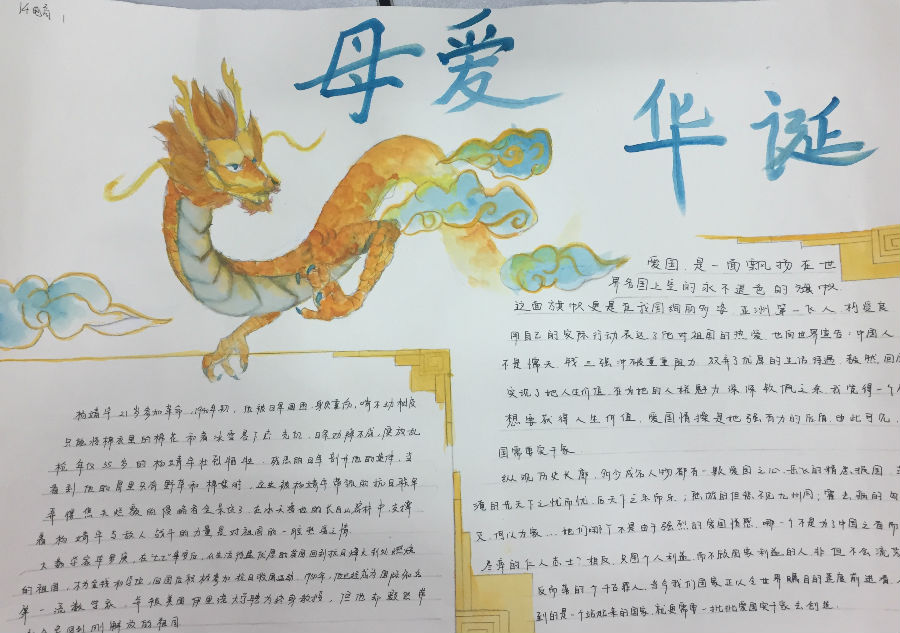 母爱
华诞
爱国,是一面飘扬在世
界各国上空的永不退色的旗帜.
这面旗帜更是在我国绚丽多姿.亚洲第一飞人
用自己的实际行动表达了他对祖国的热爱,也向世界宣告:中国人
不是懦夫.钱三强冲破重重阻力.放弃了优厚的生活待遇.毅然回
实现了他人生价值.在为他的人格魅力深深钦佩之余.我觉得一个人
想要获得人生价值.爱国情操是他强有力的后盾.由此可见,
国需要实干家
纵观历史长廊,所有成名人物都有一颗爱国之心.岳飞的精忠报国
淹的先天下之忧而忧,后天下之乐而乐;陆放翁的但悲不见九州同;霍去病的匈
又,何以为家...他们哪个不是由于强烈的爱国情感.哪一个不是为了中国之有而
的仁人志士?相反,只图个人利益.而不顾国家利益的人.非但不会流芳
反而落的个千古罪人.当今我们国家正以令世界瞩目的速度前进着
到的是一个站起来的国家.就更需要一批批爱国实干家去创造.
杨靖宇21岁参加革命.1940年初,他被日军围困.身负重伤,啃不动树皮
只能将棉衣里的棉花和着冰雪吞了充饥.日军劝降不成,便放乱
枪.年仅35岁的杨靖宇壮烈牺牲.残忍的日军剖开他的遗体,当
看到他的胃里只有野草和棉絮时,
着杨靖宇与敌人战斗的力量是对祖国的一腔热血之情
大数学家华罗庚,在七七事变后,从生活待遇优厚的英国回到抗日烽火到处燃烧
的祖国,
第一流数学家.并被美国伊里诺大学聘为终身教授.但他却毅然带
回到刚解放的祖国